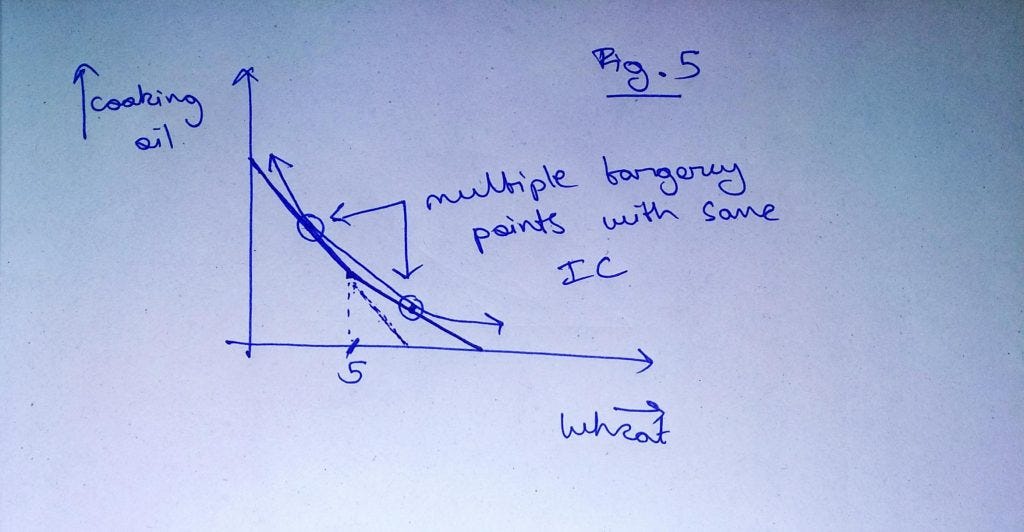 Fig. 5
cooking
oil
multiple tangency
points with same
IC
5
Wheat